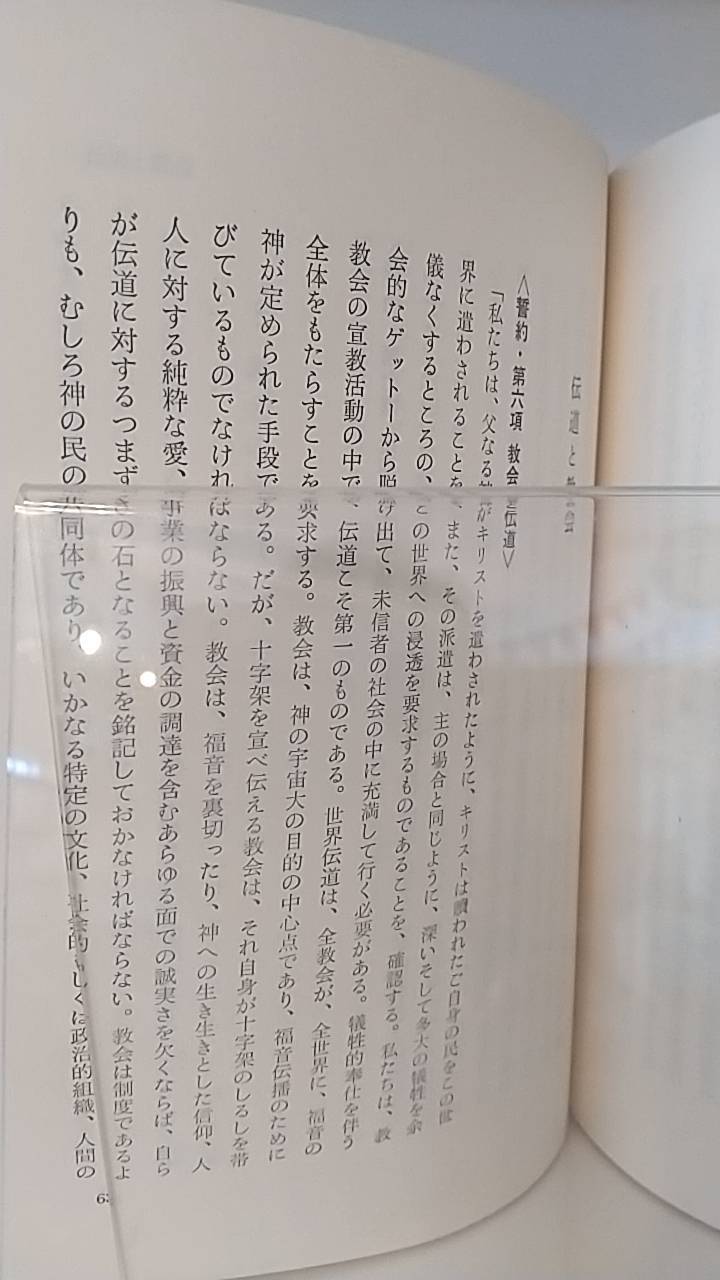 伝道と
〈誓約・第六項 教会と伝道〉
「私たちは、父なる神がキリストを遣わされたように、キリストは贖われたご自身の民をこの世
界に遣わされることを、また、その派遣は、主の場合と同じように、深いそして多大の犠牲を余
儀なくするところの、この世界への浸透を要求するものであることを、確認する。私たちは、教
会的なゲットーから脱け出て、未信者の社会の中に充満して行く必要がある。犠牲的奉仕を伴う
教会の宣教活動の中で、伝道こそ第一のものである。世界伝道は、全教会が、全世界に、福音の
全体をもたらすことを要求する。教会は、神の宇宙大の目的の中心点であり、福音伝播のために
神が定められた手段である。だが、十字架を宣べ伝える教会は、それ自身が十字架のしるしを帯
びているものでなければならない。教会は、福音を裏切ったり、神への生き生きとした信仰、人
人に対する純粋な愛、事業の振興と資金の調達を含むあらゆる面での誠実さを欠くならば、自ら
が伝道に対するつまずきの石となることを銘記しておかなければならない。教会は制度であるよ
りも、むしろ神の民の共同体であり、いかなる特定の文化、社会的もしくは政治的組織、人間の
63